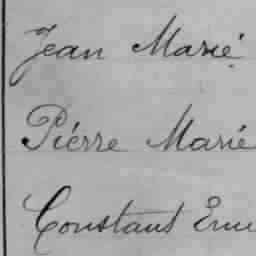 Jean Marié
Piérre Marié
Constant